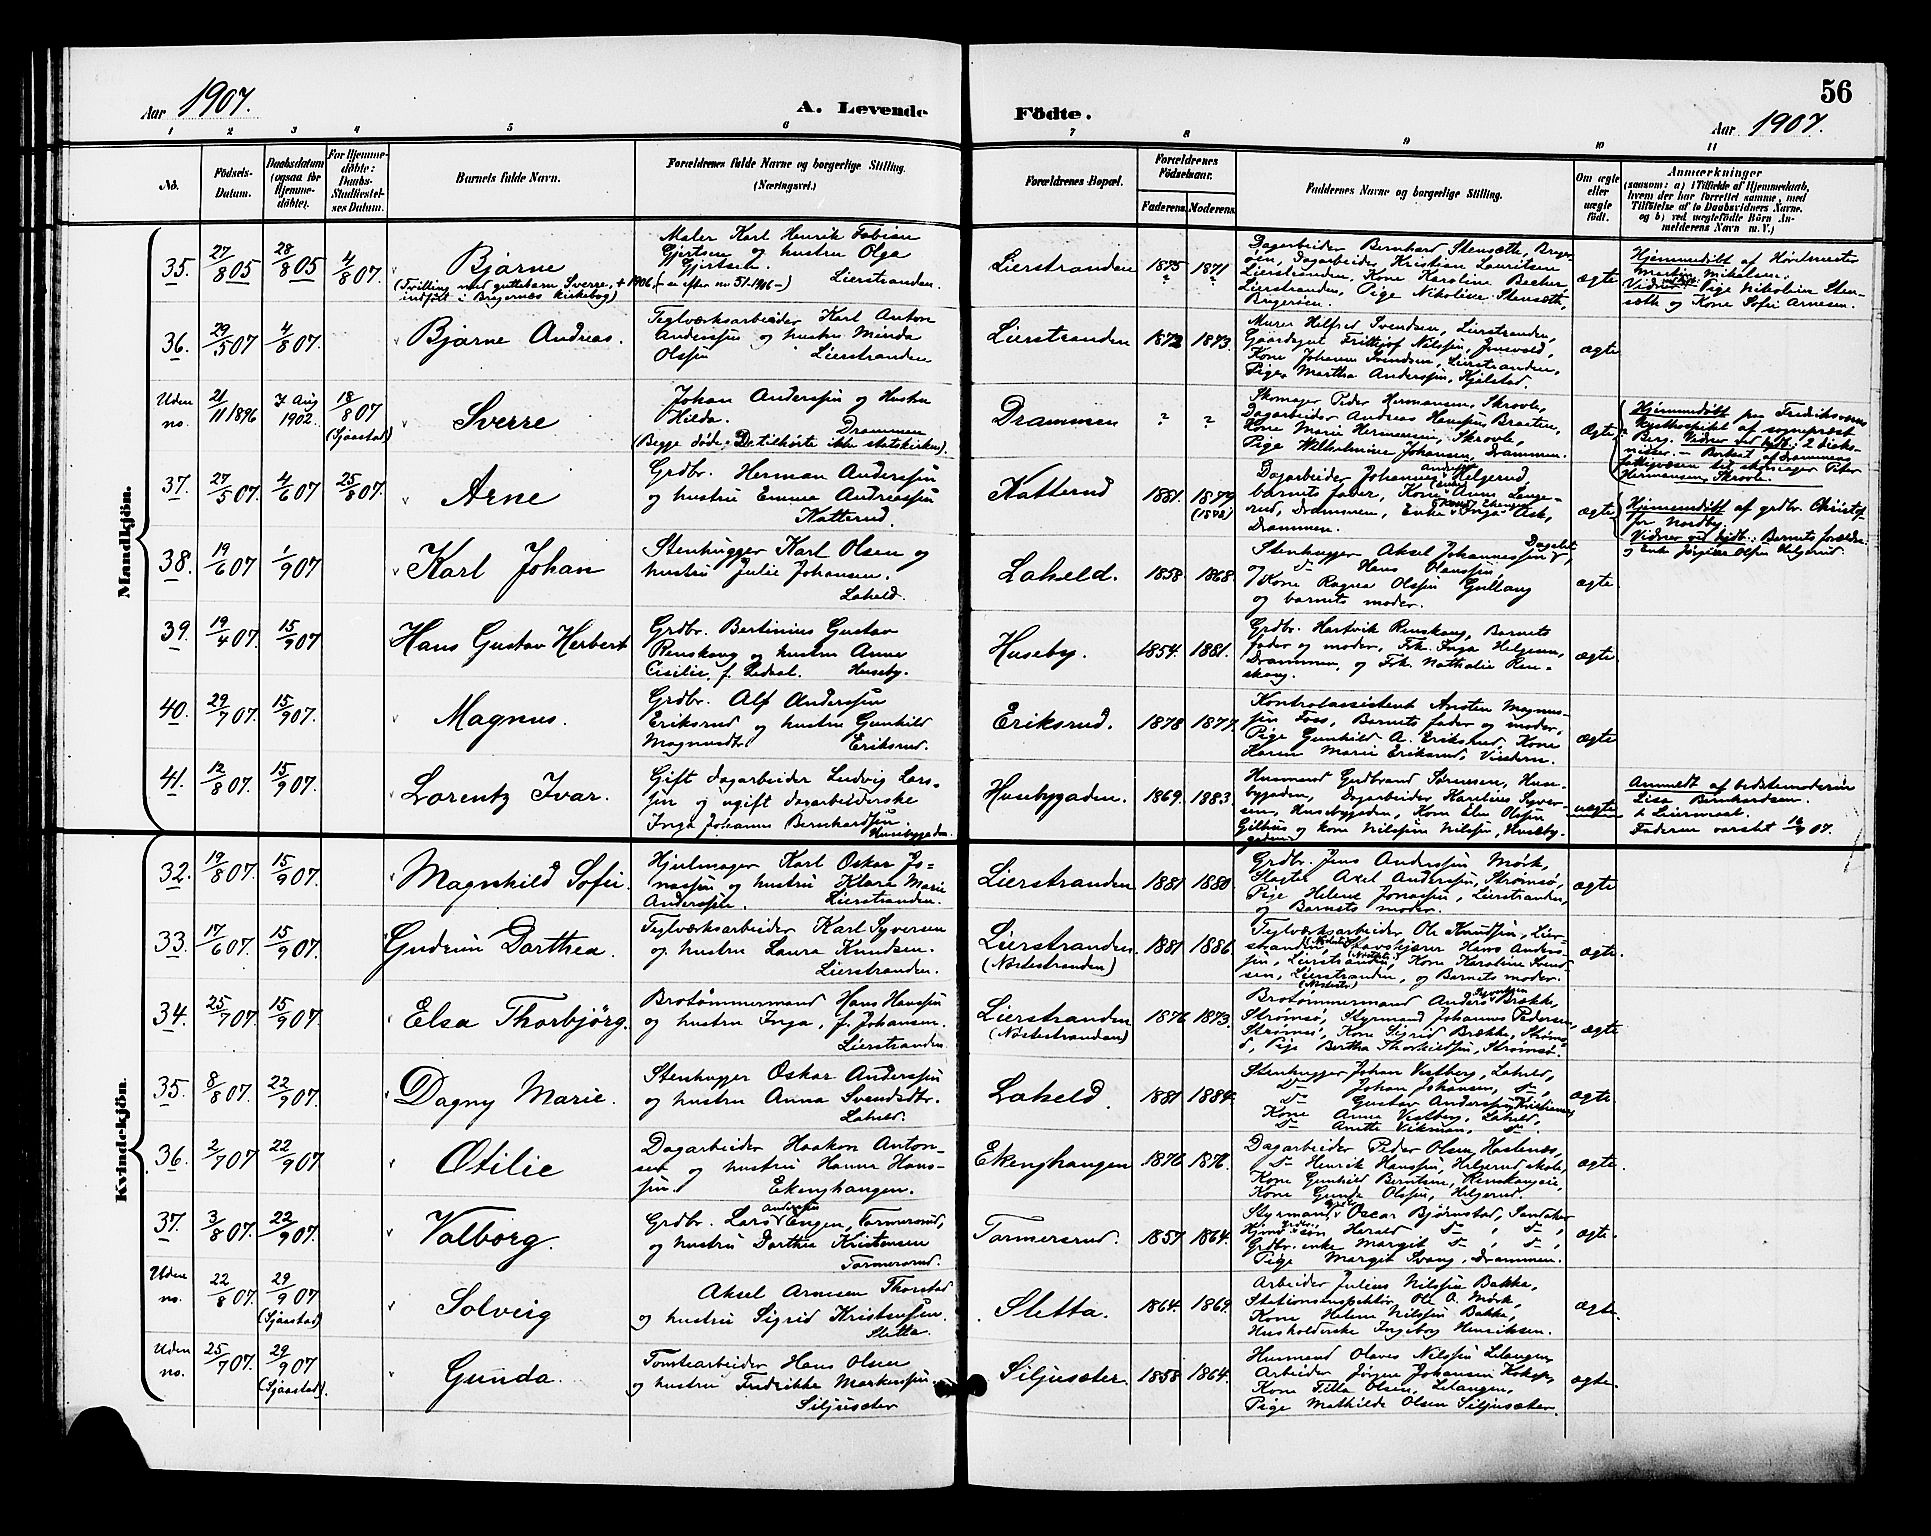 56
Aar 1907.
A. Levende Födte.
Aar 1907.
1 2 3 4 5 6 7 8 9 10 11
No.
Födsels-
Datum.
Daabsdatum
(ogsaa for
Hjemme-
döbte).
For Hjemme-
döbte:
Daabs-
Stadfæstel-
ses Datum.
Barnets fulde Navn.
Forældrenes fulde Navne og borgerlige Stilling.
(Næringsvei.)
Forældrenes Bopæl.
Forældrenes
Fødselsaar.
Faderens. Moderens.
Faddernes Navne og borgerlige Stilling.
Om ægte
eller
uægte
født.
Anmærkninger
(saasom: a) i Tilfælde af Hjemmedaab,
hvem der har forrettet samme, med
Tilföielse af to Daabsvidners Navne,
og b) ved uægtefødte Börn An-
melderens Navn m. V.)
Mandkjön.
35. 27/8 05 28/8 05 4/8 07. Bjarne
(Tvilling med guttebarn Sverre, + 1906, (- se efter no 51-1906-)
indført i Bragernes kirkebog)
Maler Karl Henrik Fabian
Gjertsen og hustru Olga
Gjertsen.
Lierstranden.
Lierstranden 1875 1871
Dagarbeider Bernhard Stensæth,
Dagarbeider Kristian Lauritsen
Lierstranden, Kone Karoline Becher,
Lierstranden, Pige Nikoline Stensæth,
ægte
Hjemmedöbt af
Martin Mikelsen.
Vidner: Pige Nikoline Sten-
sæth og Kone Sofie Arnesen.
36. 29/5 07 4/8 07. Bjarne Andreas.
Teglværksarbeider Karl Anton
Anderssen og hustru Minda
Olssen Lierstranden
Lierstranden 1872 1873.
Murer Helfred Svendsen, Lierstranden,
Gaardsgut Fritthjof Nilssen,
Kone Johanne Svendsen, Lierstranden,
Pige Martha Anderssen, Kjelstad.
ægte
Uden
no. 21/11 1896 7 Aug
1902. 18/8 07
(Sjaastad) Sverre
Johan Anderssen og Hustru
Hilda. Drammen
(Begge døde. De tilhørte ikke statskirken).
Drammen ? ?
Skomager Peder Hermansen, Skrovle,
Dagarbeider Andreas Hanssen, Braaten,
Kone Marie Hermansen, Skrovle,
Pige Wilhelmine Johansen, Drammen.
Ægte
Hjemmedöbt paa Fredriksværns
Kysthospital af sogneprest
Berg. Vidner ved daab: 2 diako-
nisser. - Bortsat af Drammens
fattigvæsen til skomager Peter
Hermansen, Skrovle.
37. 27/5 07. 4/6 07 25/8 07. Arne
Grdbr. Herman Anderssen
og hustru Emma Andreassen
Katterud.
Katterud 1881. 1879
Dagarbeider Johannes Helgerud,
barnets fader, Kone Anne Lange-
rud, Drammen, Enke Inga Ask,
Drammen.
ægte
Hjemmedöbt af grdbr. Christof-
fer Nordby.
Vidner ved daab: Barnets forældre
og Enke Jørgine Olsen Helgerud.
38. 19/6 07 1/9 07 Karl Johan
Stenhugger Karl Olsen og
hustru Julie Johansen.
Laheld.
Laheld. 1858. 1868.
Stenhugger Aksel Johannessen,
og Do Hans Olaussen,
Kone Ragna Olssen Gullaug
og barnets moder.
ægte
39. 19/4 07. 15/9 07 Hans Gustav Herbert
Grdbr. Bertinius Gustav
Renskaug og hustru Anne
Cicilie, f. Huseby.
Huseby. 1854. 1881.
Grdbr. Hartvik Renskaug, Barnets
fader og moder, Frk. Inga Helgesen,
Drammen, og Frk. Nathalie Ren-
skaug.
ægte
40. 29/7 07. 15/9 07. Magnus.
Grdbr. Alf Anderssen
Eriksrud og hustru Gunhild
Magnusdtr. Eriksrud.
Eriksrud. 1878 1877.
Kontrolassistent Ansten Magnus-
sen Foss, Barnets fader og moder,
Pige Gunhild A. Eriksrud, Kone
Karen Marie Eriksrud,
ægte
41. 12/8 07. 15/9 07. Lorentz Ivar.
Gift dagarbeider Ludvig Lars-
sen og ugift dagarbeiderske
Inga Johanne Bernhardsen.
Husebygaden.
Husebygaden. 1869. 1883.
Husmand Gudbrand Sørensen, Huse-
bygaden, Dagarbeider Syver-
sen, Husebygaden, Kone Olssen
Gilhus og kone Nilssine Nilssen, Huseby-
gaden.
uægte
Anmeldt af bedstemoderen
Lisa Bernhardsen.
Kvindekjön.
32. 19/8 07. 15/9 07. Magnhild Sofie.
Hjulmager Karl Oskar Jo-
nassen og hustru Klara Marie
Anderssen. Lierstranden.
Lierstranden 1881 1880.
Grdbr. Jens Anderssen Mørk,
Slagter Axel Anderssen, Strømsø,
Pige Helene Jonassen, Lierstranden,
og Barnets moder.
ægte
33. 17/6 07. 15/9 07. Gudrun Dorthea.
Teglværksarbeider Karl Syversen
og hustru Laura Knudsen.
Lierstranden.
Lierstranden
(Nøstestranden) 1881 1886.
Teglværksarbeider Ole Knudsen, Lier-
stranden, Hans Anders-
sen, Lierstranden, Kone Karoline Knud-
sen, Lierstranden, og Barnets moder.
ægte.
34. 25/7 07. 15/9 07. Elsa Thorbjörg.
Brotømmermand Hans Hanssen
og hustru Inga, f. Johansen.
Lierstranden
Lierstranden
(Nøstestranden) 1876 1873.
Brotømmermand Anders Brække,
Strømsø, Styrmand Johannes Pedersen,
Strømsø, Kone Sigrid Brække, Strøms-
ø, Pige Bertha Thorkildsen, Strømsø.
ægte
35. 8/8 07. 22/9 07. Dagny Marie.
Stenhugger Oskar Anderssen
og hustru Anna Svendsdtr.
Laheld.
Laheld 1881 1884.
Stenhugger Johan Vestberg, Laheld,
Do Johan Johansen, Do,
Do Gustav Anderssen, Kristiania,
Kone Anna Vestberg, Laheld,
Do Anette Vikman, Do
ægte.
36. 2/7 07 22/9 07 Otilie
Dagarbeider Haakon Anton-
sen og hustru Hanna Hans-
sen. Ekenghaugen.
Ekenghaugen 1870 1870.
Dagarbeider Peder Olsen,
Do Henrik Hanssen, Helgerud skole,
Kone Gunhild Berntsen,
Kone Gunda Olssen, Helgerud.
ægte.
37. 3/8 07. 22/9 07. Valborg.
Grdbr. Lars Anderssen Engen, Tormersrud,
og hustru Dorthea Kristensen
Tormersrud.
Tormersrud. 1857 1864.
Styrmand Oscar Bjørnstad,
Harald Do, Do,
Grdbr. enke Margit Do, Do,
Pige Margit Svang, Drammen.
ægte.
Uden
no. 22/8 07. 29/9 07
(Sjaastad) Solveig
Aksel Arnesen Thorstad
og hustru Sigrid Kristensen.
Sletta.
Sletta. 1864. 1869.
Arbeider Julius Nilssen Bakka,
Stationsinspektör Ole A. Mørk,
Kone Helene Nilssen Bakka,
Husholderske Ingeborg Henriksen.
ægte.
Uden
no. 25/7 07. 29/9 07
(Sjaastad). Gunda.
Tomtearbeider Hans Olsen
og hustru Fredrikke Markussen
Siljusæter
Siljusæter 1858 1864.
Husmand Olaves Nilssen Lelangen,
Arbeider Jørgen Johansen
Kone Tilla Olsen, Lelangen,
Pige Mathilde Olsen Siljusæter.
ægte.